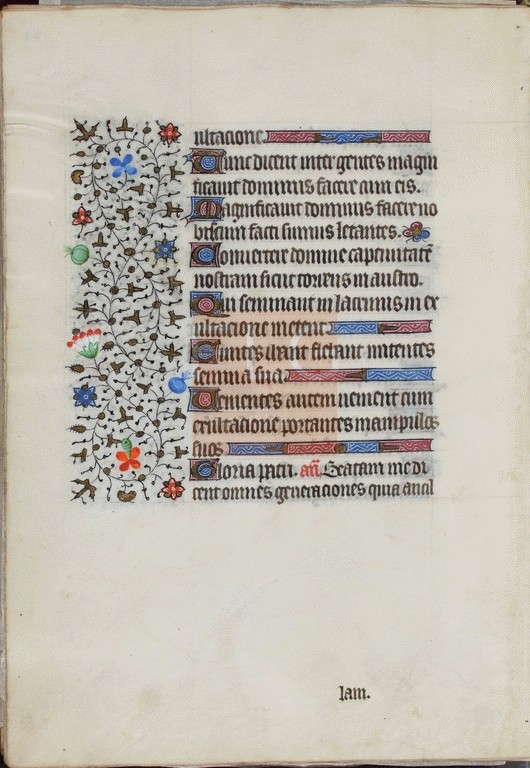 ultacione.
Tunc dicent inter gentes magni
ficauit dominus facere cum eis.
Magnificauit dominus facere no
biscum facti sumus letantes.
Conuertere domine captiuitatē
nostram sicut torrens in austro.
Qui seminant in lacrimis in ex
ultacione metent.
Euntes ibant et flebant mitentes
semina sua.
Uenientes autem uenient cum
exultacione portantes manipulos
suos.
Gloria patri. añ. Beatam me di
cent omnes generaciones quia ancil
lam.